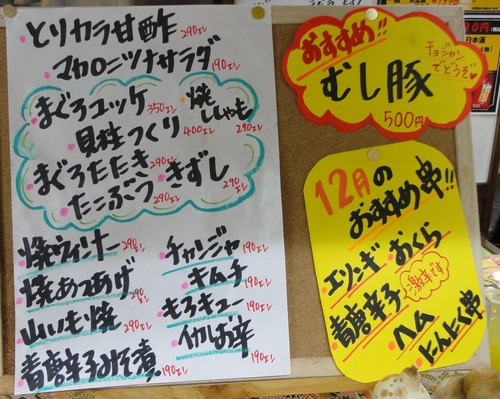 とりカラ甘酢 290エン
マカロニツナサラダ 190エン
まぐろユッケ 350エン
焼ししゃも 290エン
貝柱つくり 400エン
まぐろたたき 290エン
たこぶつ 290エン
きずし 290エン
焼ウィンナー 290エン
焼あつあげ 290エン
山いも焼 290エン
青唐辛子みそ漬 190エン
チャンジャ 190エン
キムチ 190エン
もろキュー 190エン
イカしお辛 190エン
おすすめ!!
むし豚
チョジャンでどうぞ♥
500円
12月の
おすすめ串!!
エリンギ
おくら
青唐辛子
激辛です
ハム
にんにく串
日本酒